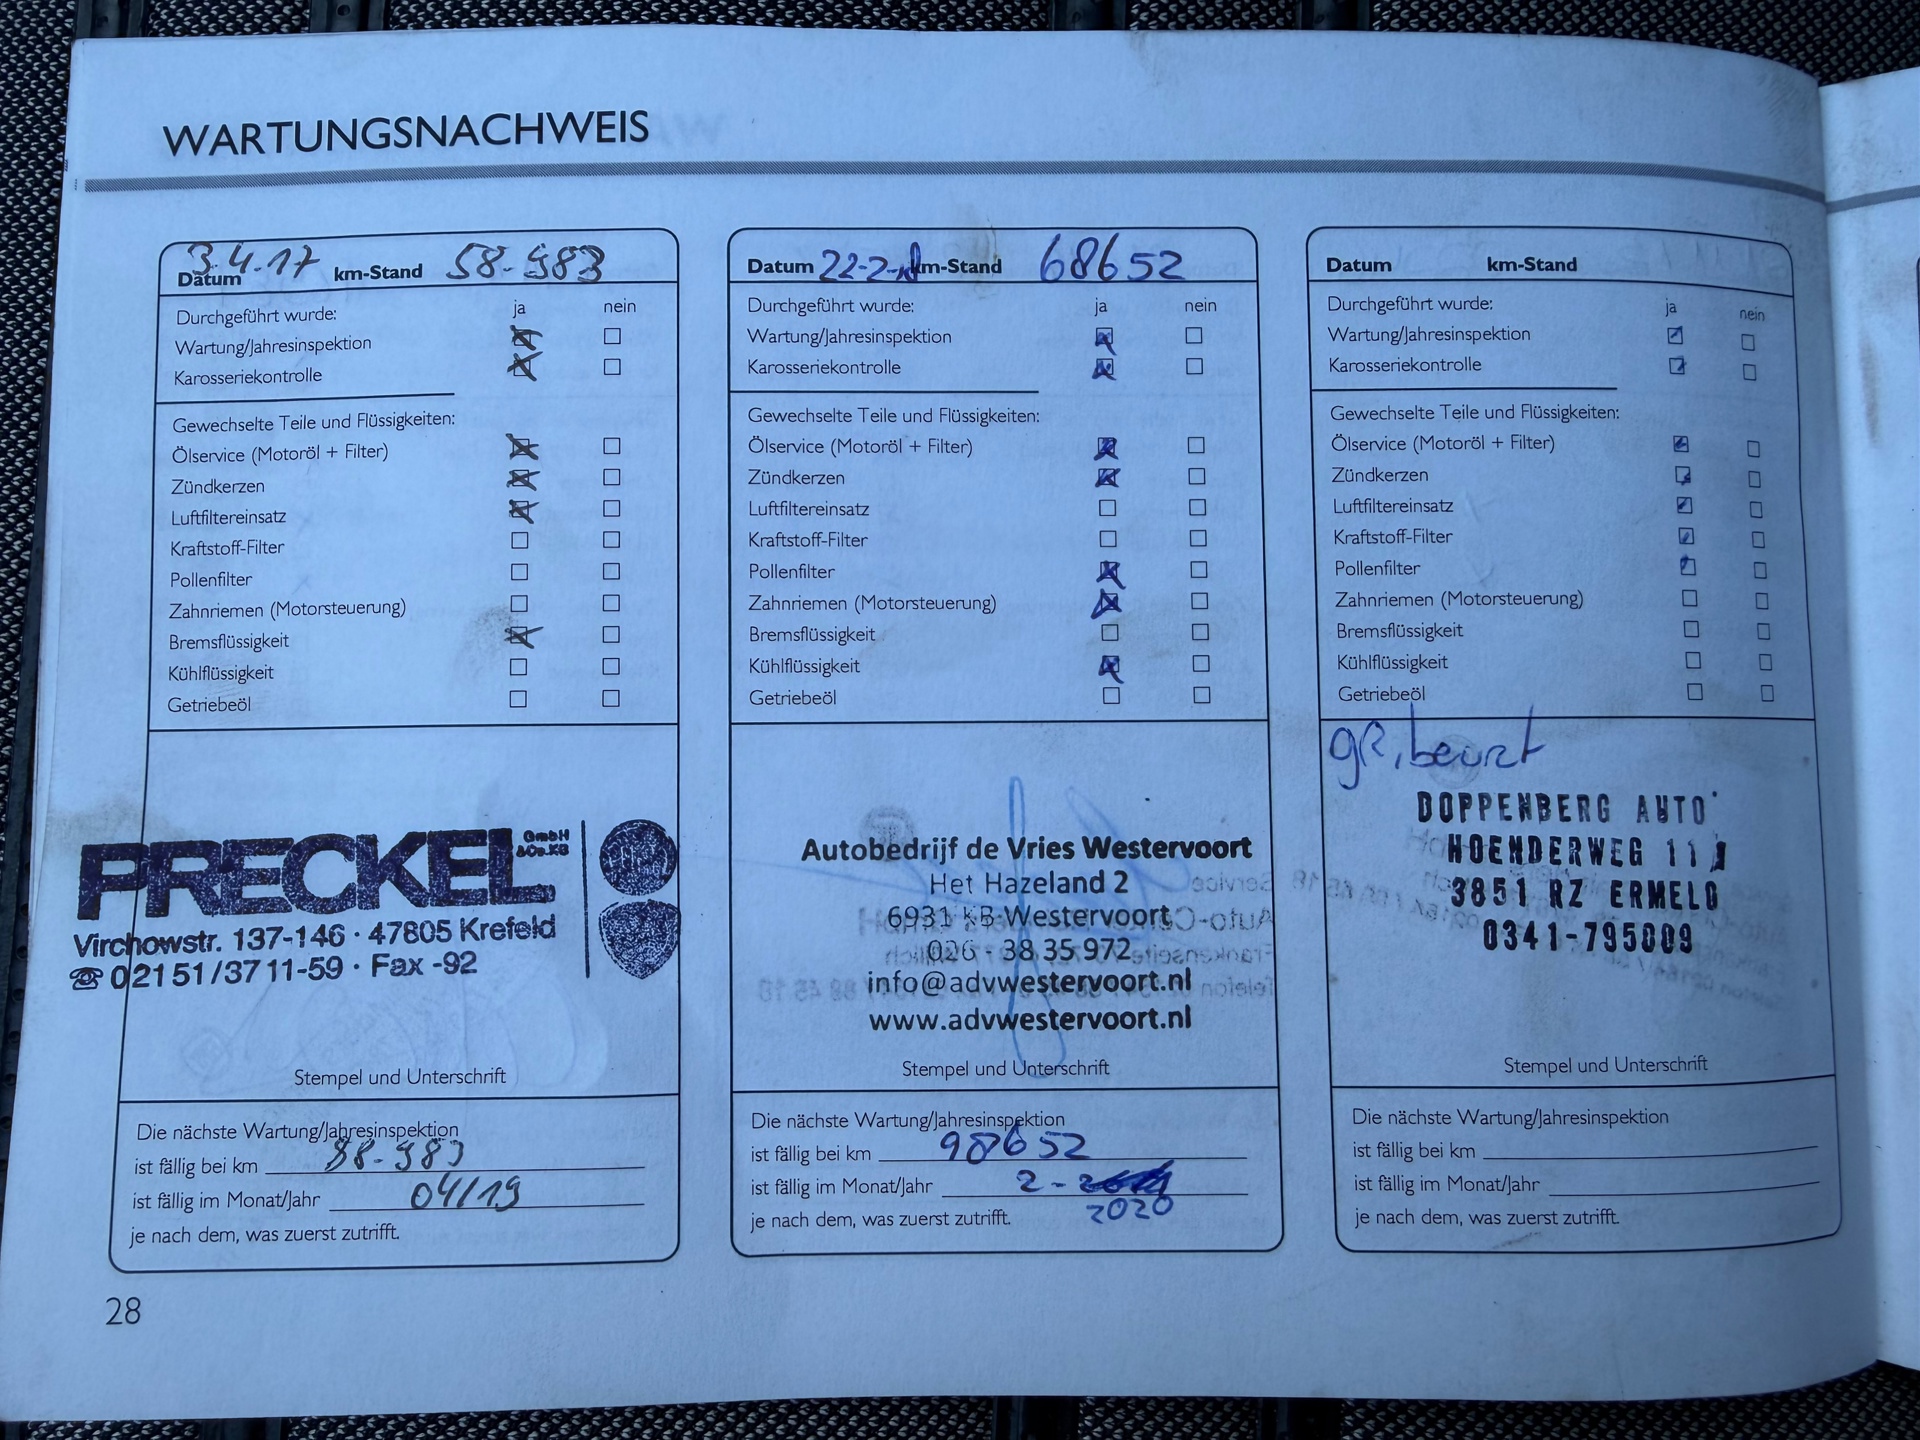 WARTUNGSNACHWEIS
Datum 3.4.17 km-Stand 58.983
Durchgeführt wurde: ja nein
Wartung/Jahresinspektion
Karosseriekontrolle
Gewechselte Teile und Flüssigkeiten:
Ölservice (Motoröl + Filter)
Zündkerzen
Luftfiltereinsatz
Kraftstoff-Filter
Pollenfilter
Zahnriemen (Motorsteuerung)
Bremsflüssigkeit
Kühlflüssigkeit
Getriebeöl
PRECKEL GmbH & Co. KG
Virchowstr. 137-146 · 47805 Krefeld
☎ 02151/3711-59 · Fax -92
Stempel und Unterschrift
Die nächste Wartung/Jahresinspektion
ist fällig bei km 88.983
ist fällig im Monat/Jahr 04/19
je nach dem, was zuerst zutrifft.
28
Datum 22-2-18 km-Stand 68652
Durchgeführt wurde: ja nein
Wartung/Jahresinspektion
Karosseriekontrolle
Gewechselte Teile und Flüssigkeiten:
Ölservice (Motoröl + Filter)
Zündkerzen
Luftfiltereinsatz
Kraftstoff-Filter
Pollenfilter
Zahnriemen (Motorsteuerung)
Bremsflüssigkeit
Kühlflüssigkeit
Getriebeöl
Autobedrijf de Vries Westervoort
Het Hazeland 2
6931 KB Westervoort
026 - 38 35 972
info@advwestervoort.nl
www.advwestervoort.nl
Stempel und Unterschrift
Die nächste Wartung/Jahresinspektion
ist fällig bei km 98652
ist fällig im Monat/Jahr 2 -
2020
je nach dem, was zuerst zutrifft.
Datum km-Stand
Durchgeführt wurde: ja nein
Wartung/Jahresinspektion
Karosseriekontrolle
Gewechselte Teile und Flüssigkeiten:
Ölservice (Motoröl + Filter)
Zündkerzen
Luftfiltereinsatz
Kraftstoff-Filter
Pollenfilter
Zahnriemen (Motorsteuerung)
Bremsflüssigkeit
Kühlflüssigkeit
Getriebeöl
gR. beurt
DOPPENBERG AUTO'
HOENDERWEG 11
3851 RZ ERMELO
0341-795009
Stempel und Unterschrift
Die nächste Wartung/Jahresinspektion
ist fällig bei km
ist fällig im Monat/Jahr
je nach dem, was zuerst zutrifft.